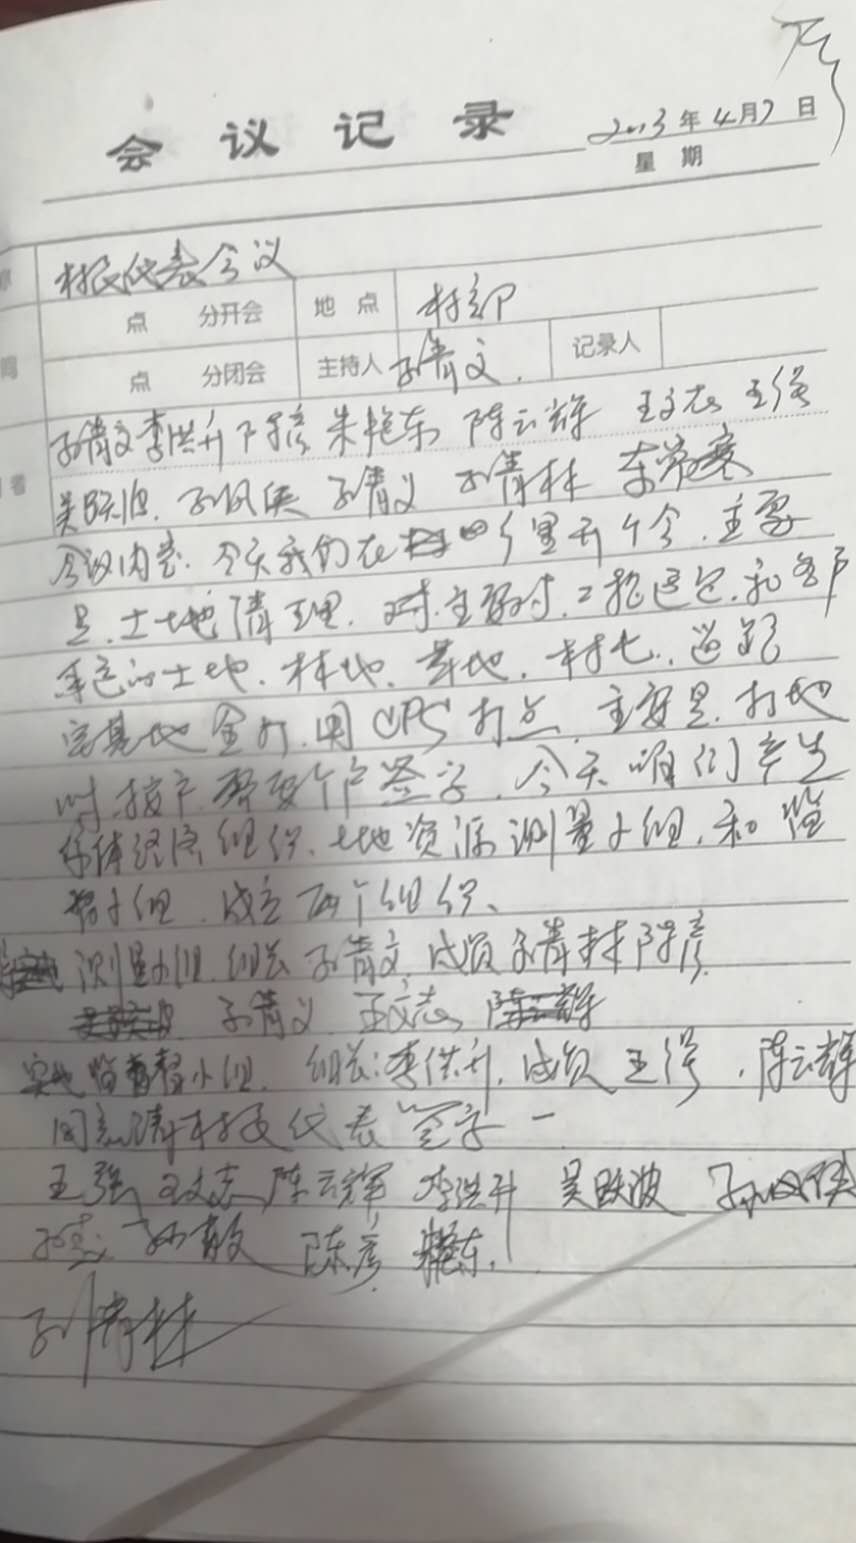 会议记录
2013年4月7日
星期
村民代表会议
点 分开会 地点 村部
点 分闭会 主持人 孙青文 记录人
孙青文 李洪升 陈彦 朱艳东 陈云辉 王文志 王强
吴跃波 孙凤侠 孙青义 孙青林
会议内容 今天我们在这里开个会 主要
是 土地清理 对 主要对 二轮延包 和各户
承包的土地 林地 草地 村屯 道路
宅基地 全打 用GPS打点 主要是 打地
时 按户 都要个户签字 今天咱们产生
集体经济组织 土地资源测量小组 和监
督小组 成立两个组织
测量小组 组长 孙青文 成员 孙青林 陈彦
孙青义 王文志
监督小组 组长:李洪升 成员 王强 陈云辉
同意请村民代表签字
王强 王文志 陈云辉 李洪升 吴跃波 孙凤侠
陈彦
孙青林